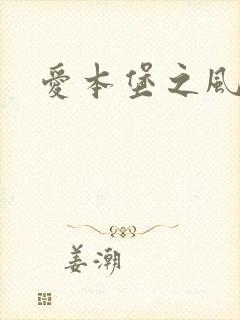 愛本堡之風
姜潮